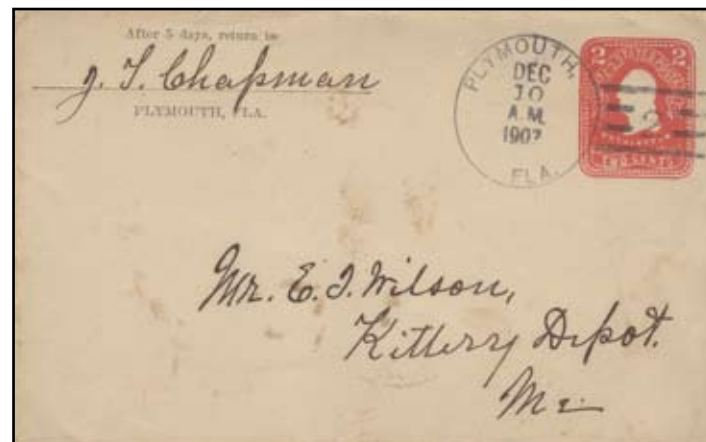 After 5 days, return to
J. T. Chapman
PLYMOUTH, FLA.
PLYMOUTH,
DEC
10
A.M.
1907
FLA.
2 2
TWO CENTS
Mr. E. J. Wilson,
Kittery Depot.
Me